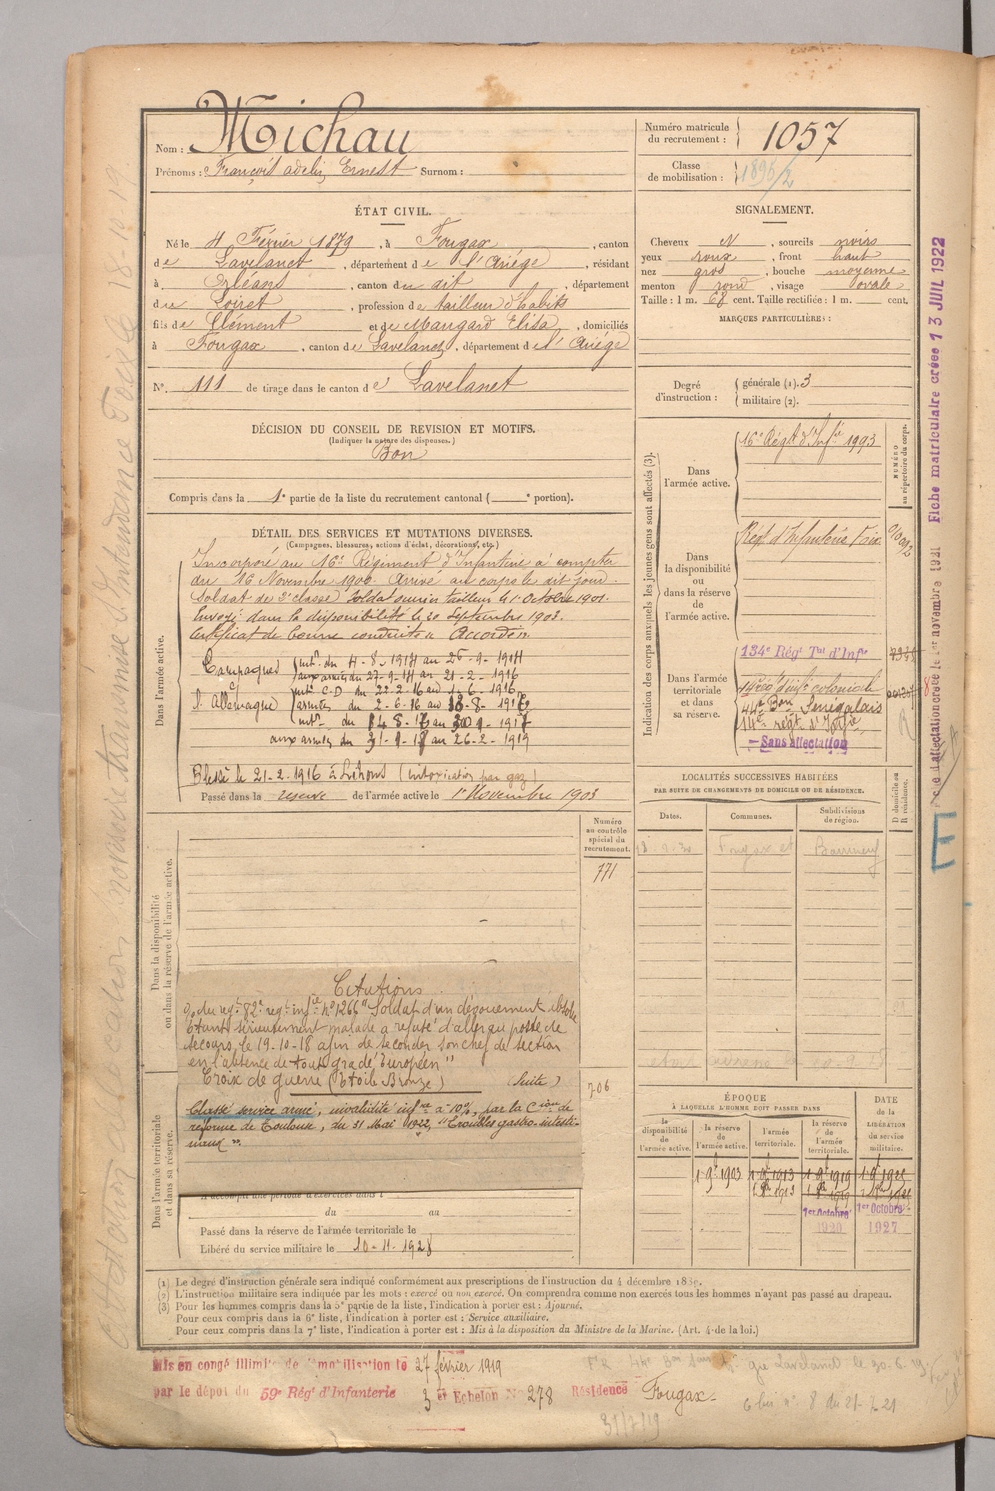 Nom : Michau
Prénoms : François adelin Ernest Surnom :
Numéro matricule du recrutement : 1057
Classe de mobilisation : 1896/2
ÉTAT CIVIL.
Né le 4 Février 1879, à Fougax, canton
de Lavelanet, département de l'Ariège, résidant
à Orléans, canton du dit, département
du Loiret, profession de tailleur d'habits
fils de Clément et de Maugard Elisa, domiciliés
à Fougax, canton de Lavelanet, département de l'Ariège
N°. 111 de tirage dans le canton de Lavelanet
SIGNALEMENT.
Cheveux N, sourcils noirs
yeux roux, front haut
nez gros, bouche moyenne
menton rond, visage ovale
Taille : 1 m. 68 cent. Taille rectifiée : 1 m. cent.
MARQUES PARTICULIÈRES :
Degré d'instruction : générale (1). 3
militaire (2).
DÉCISION DU CONSEIL DE REVISION ET MOTIFS.
(Indiquer la nature des dispenses.)
Bon
Compris dans la 1e partie de la liste du recrutement cantonal ( e portion).
DÉTAIL DES SERVICES ET MUTATIONS DIVERSES.
(Campagnes, blessures, actions d'éclat, décorations, etc.)
Dans l'armée active.
Incorporé au 16e Régiment d'Infanterie à compter
du 16 Novembre 1900. Arrivé au corps le dit jour.
Soldat de 2e classe. Soldat ouvrier tailleur le 1er Octobre 1901.
Envoyé dans la disponibilité le 20 Septembre 1903.
Certificat de bonne conduite "Accordé".
Campagnes
c. Allemagne
intr. du 4-8-1914 au 26-9-1914
aux armées du 27-9-14 au 21-2-1916
intr. C-D du 22-2-16 au 1-6-1916
armées du 2-6-16 au
aux armées du au 26-2-1919
Blessé le 21-2-1916 à Lihons (intoxication par gaz)
Passé dans la réserve de l'armée active le 1er Novembre 1903
Indication des corps auxquels les jeunes gens sont affectés (3).
Dans l'armée active.
16e Régt d'Infie 1993
NUMÉRO au répertoire du corps.
Dans la disponibilité ou dans la réserve de l'armée active.
Régt d'Infanterie Foix
Dans l'armée territoriale et dans sa réserve.
134e Régt Tal d'Infie
d'infie coloniale
44e Bon Sénégalais
14e régt d'Infie
- Sans affectation
LOCALITÉS SUCCESSIVES HABITÉES
PAR SUITE DE CHANGEMENTS DE DOMICILE OU DE RÉSIDENCE.
D domicile ou R résidence.
Dates. Communes. Subdivisions de région.
Fougax et Barrineuf
Numéro au contrôle spécial du recrutement.
771
706
Dans la disponibilité ou dans la réserve de l'armée active.
Citations
O/ du regt 82e regt infie N° 1266 "Soldat d'un dévouement absolu
Etant sérieusement malade a refusé d'aller au poste de
secours, le 19-10-18 afin de seconder son chef de section
en l'absence de tout gradé Européen"
Croix de guerre (Etoile Bronze) (Suite)
Classé service armé, invalidité infre à 10%, par la Cion de
réforme de Toulouse, du 31 Mai 1922, "Troubles gastro-intesti-
naux".
Dans l'armée territoriale et dans sa réserve.
A accompli une période d'exercices dans l
du au
Passé dans la réserve de l'armée territoriale le
Libéré du service militaire le 10-11-1928
ÉPOQUE
À LAQUELLE L'HOMME DOIT PASSER DANS
la disponibilité de l'armée active. la réserve de l'armée active. l'armée territoriale. la réserve de l'armée territoriale.
DATE de la LIBÉRATION du service militaire.
1-9bre 1903 1-9bre 1913 1-9bre 1919 1-9bre 1925
1er Octobre 1920
1er Octobre 1927
(1) Le degré d'instruction générale sera indiqué conformément aux prescriptions de l'instruction du 4 décembre 1889.
(2) L'instruction militaire sera indiquée par les mots : exercé ou non exercé. On comprendra comme non exercés tous les hommes n'ayant pas passé au drapeau.
(3) Pour les hommes compris dans la 5e partie de la liste, l'indication à porter est : Ajourné.
Pour ceux compris dans la 6e liste, l'indication à porter est : Service auxiliaire.
Pour ceux compris dans la 7e liste, l'indication à porter est : Mis à la disposition du Ministre de la Marine. (Art. 4 de la loi.)
Mis en congé illimité de démobilisation le 27 février 1919
par le dépôt du 59e Régt d'Infanterie 3 et Echelon N° 278 Résidence Fougax.
31/7/19
8 du 21-7-21
Fiche matriculaire créée 13 JUIL 1922
Fiche d'affectation créée le 1er novembre 1921
E